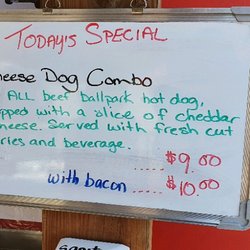 TODAY'S SPECIAL
heese Dog Combo
ALL beef ballpark hot dog,
pped with a slice of cheddar
heese. Served with fresh cut
ries and beverage.
$9.00
with bacon ..... $10.00